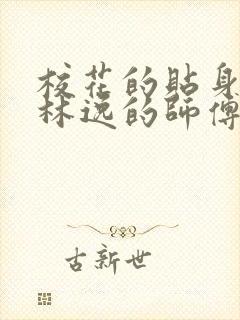 校花的貼身
林逸的師傅
古新世